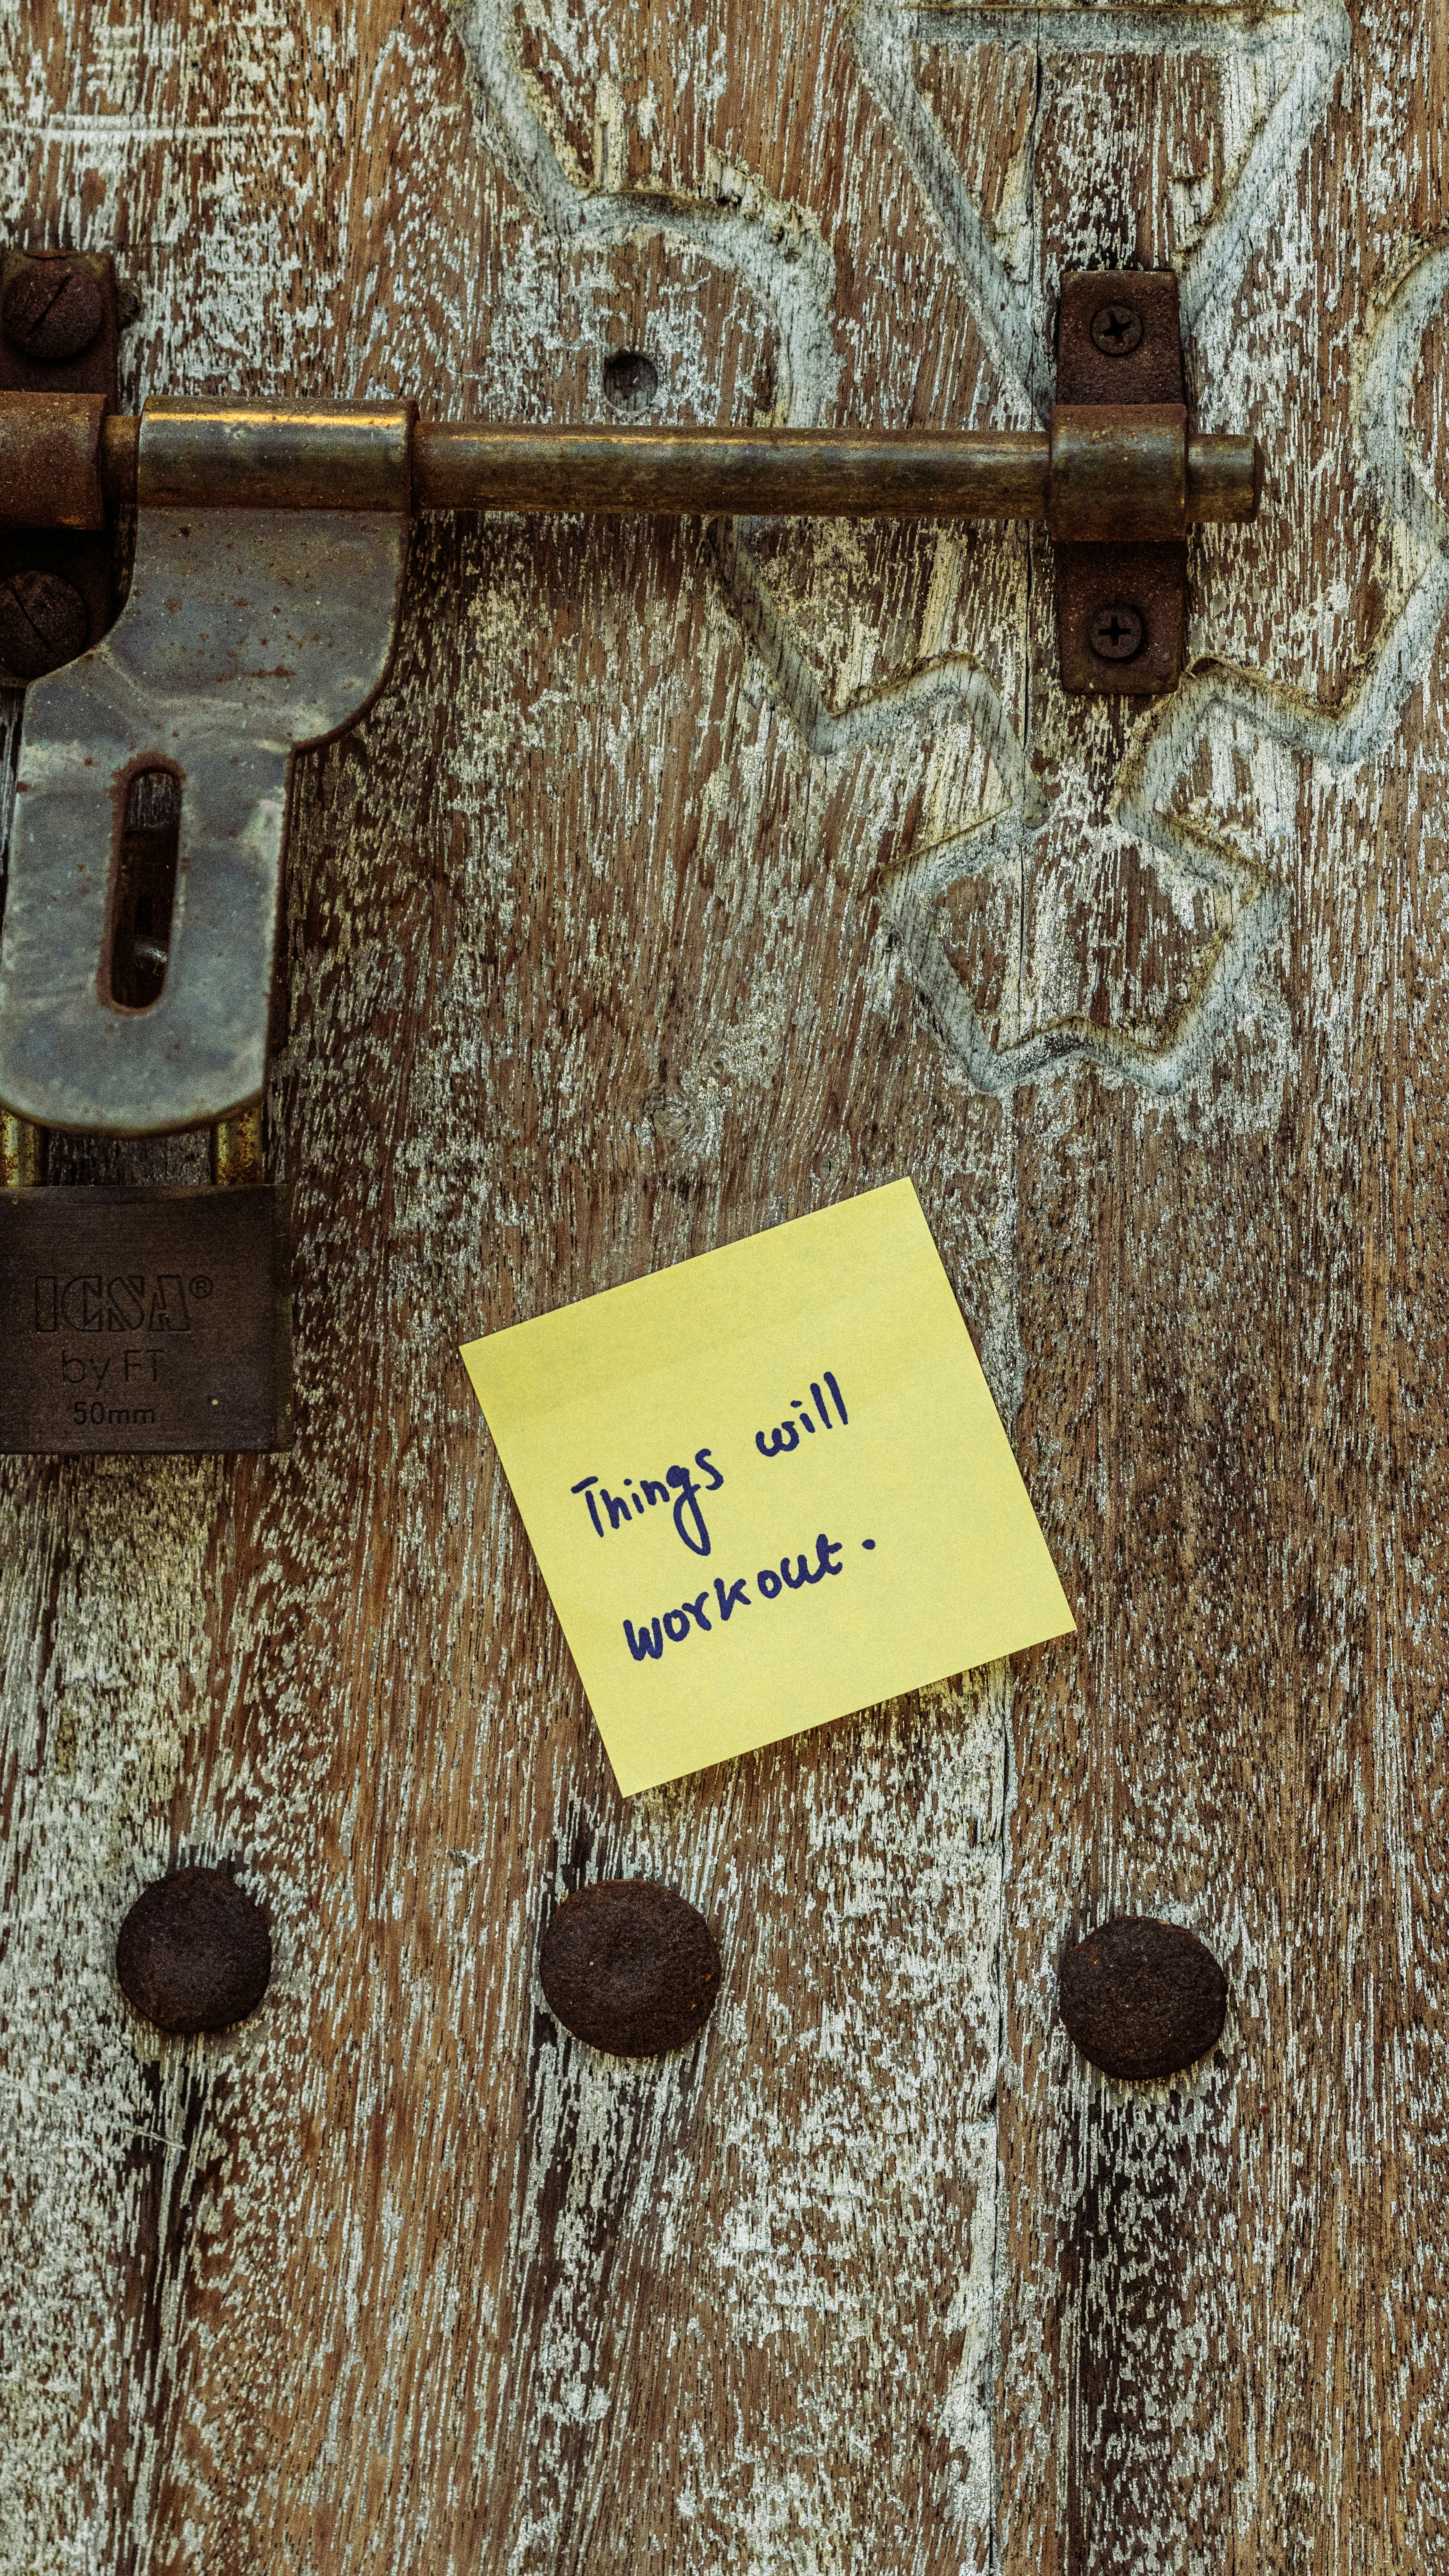 ICSA®
by FT
50mm
Things will
workout.